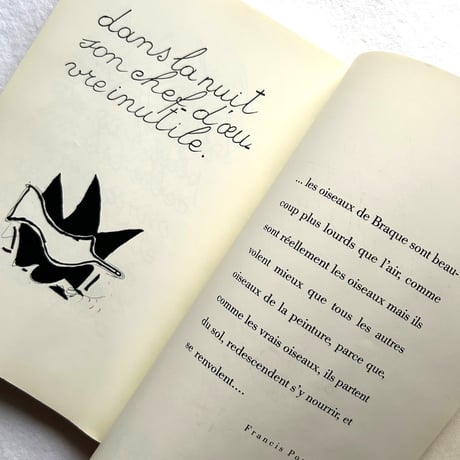 dans la nuit
son chef-d'œu-
vre inutile.
...les oiseaux de Braque sont beau-
coup plus lourds que l'air, comme
sont réellement les oiseaux mais ils
volent mieux que tous les autres
oiseaux de la peinture, parce que,
comme les vrais oiseaux, ils partent
du sol, redescendent s'y nourrir, et
se renvolent....
Francis